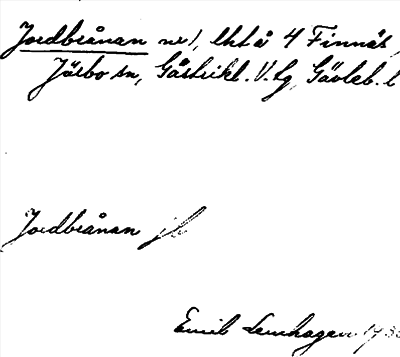 Jordbrånan nr 1, lht å 4 Finnäs,
Järbo sn, Gästrikl. V. tg, Gävleb. l
Jordbrånan
Emil Lernhagen 193